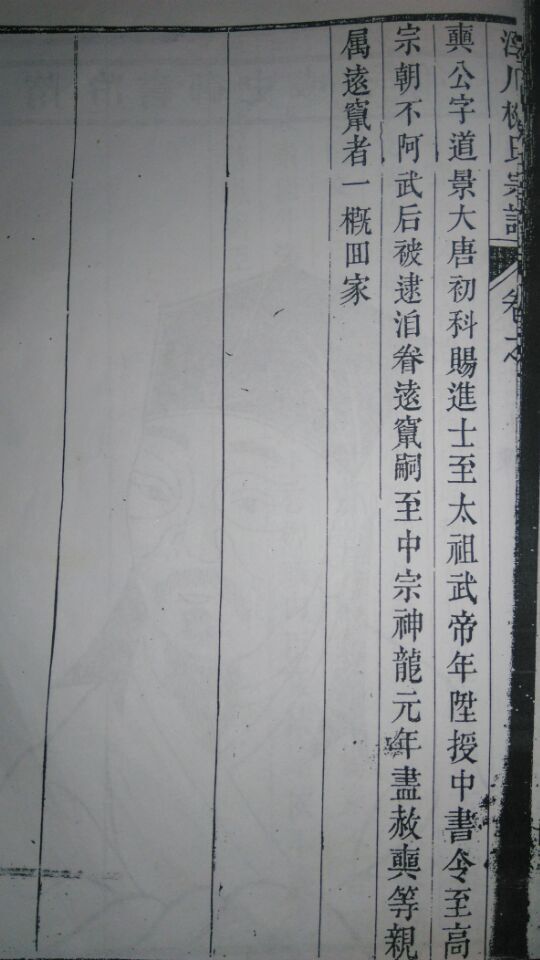 川柳氏宗譜 卷之
奭公字道景大唐初科賜進士至太祖武帝年陞授中書令至高
宗朝不阿武后被逮洎眷逺竄嗣至中宗神龍元年盡赦奭等親
属逺竄者一概囬家